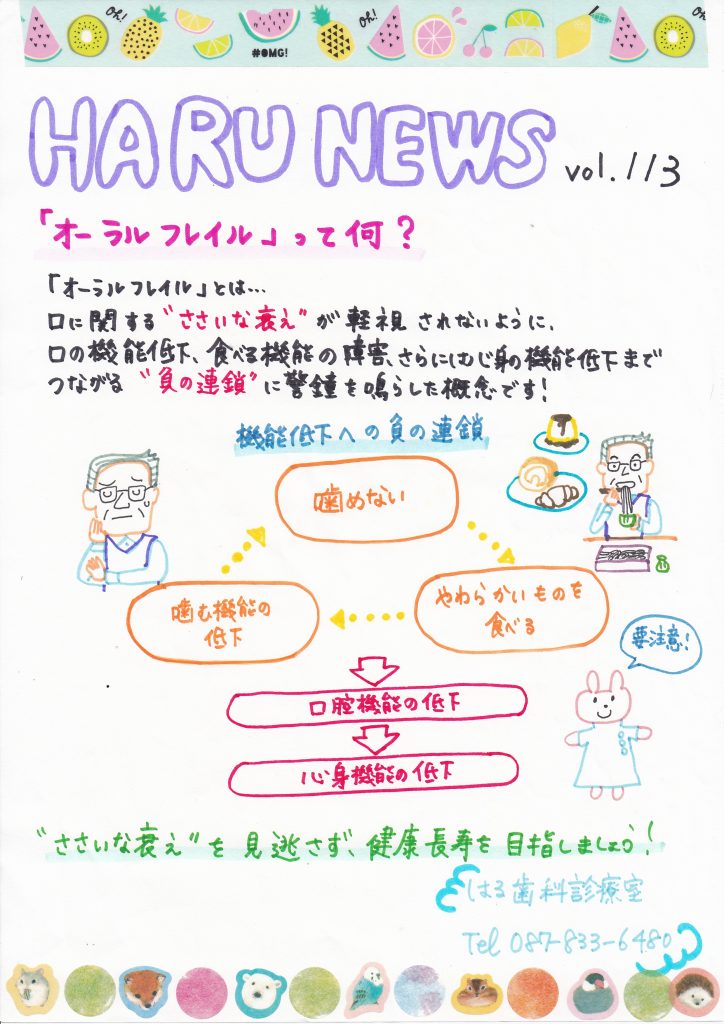 Oh!
#OMG!
Oh!
Oh!
HARU NEWS vol.113
「オーラルフレイル」って何?
「オーラルフレイル」とは…
口に関する"ささいな衰え"が軽視されないように、
口の機能低下、食べる機能の障害、さらには心身の機能低下まで
つながる"負の連鎖"に警鐘を鳴らした概念です!
機能低下への負の連鎖
噛めない
やわらかいものを
食べる
噛む機能の
低下
口腔機能の低下
心身機能の低下
要注意!
"ささいな衰え"を見逃さず、健康長寿を目指しましょう!
はる歯科診療室
Tel 087-833-6480